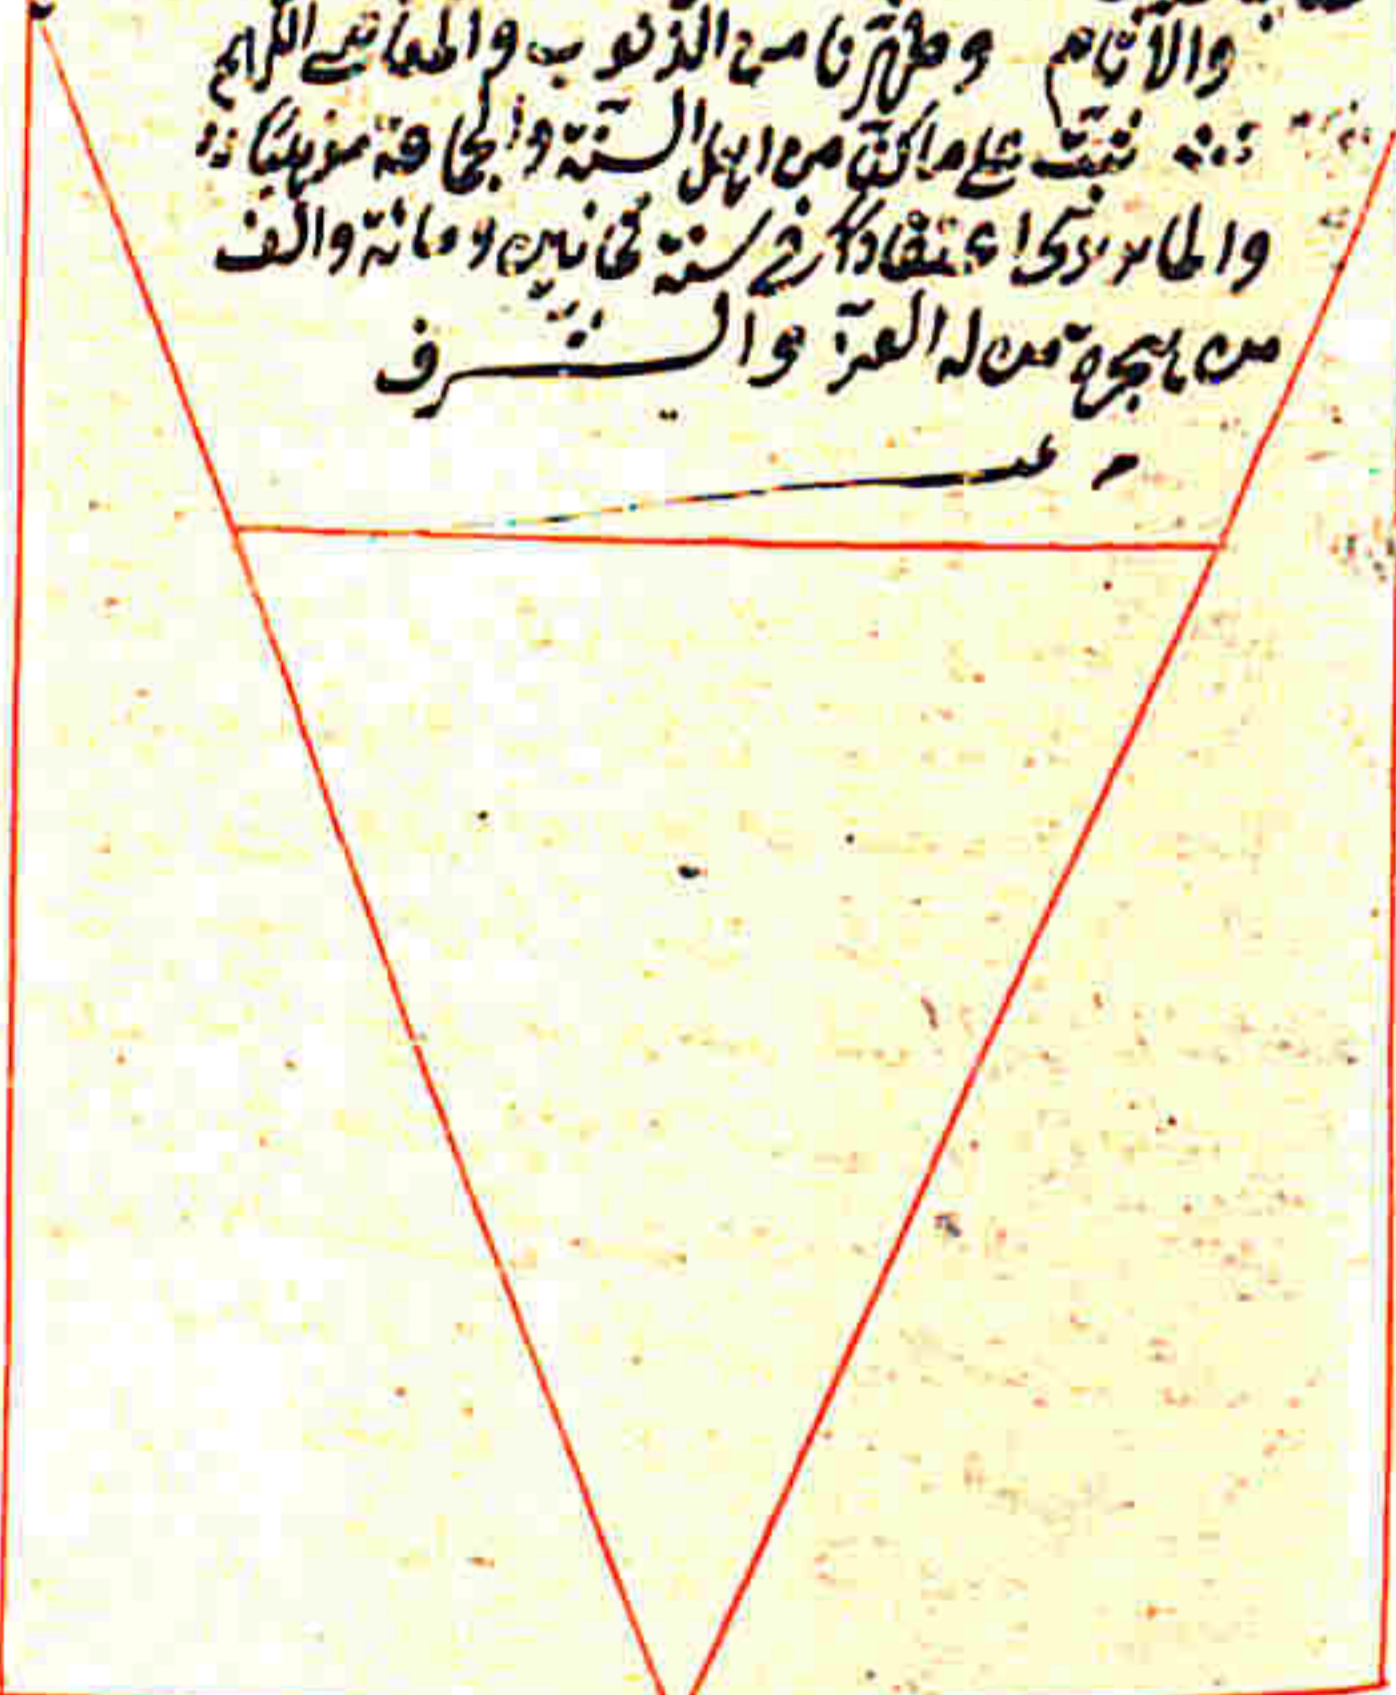 والآثام وطهرنا من الذنوب والمعاصي
ثبت على من اهل السنة والجماعة
والماتريدي اعتقادا في سنة ثمانين ومائة والف
من هجرة من له العز والشرف
م